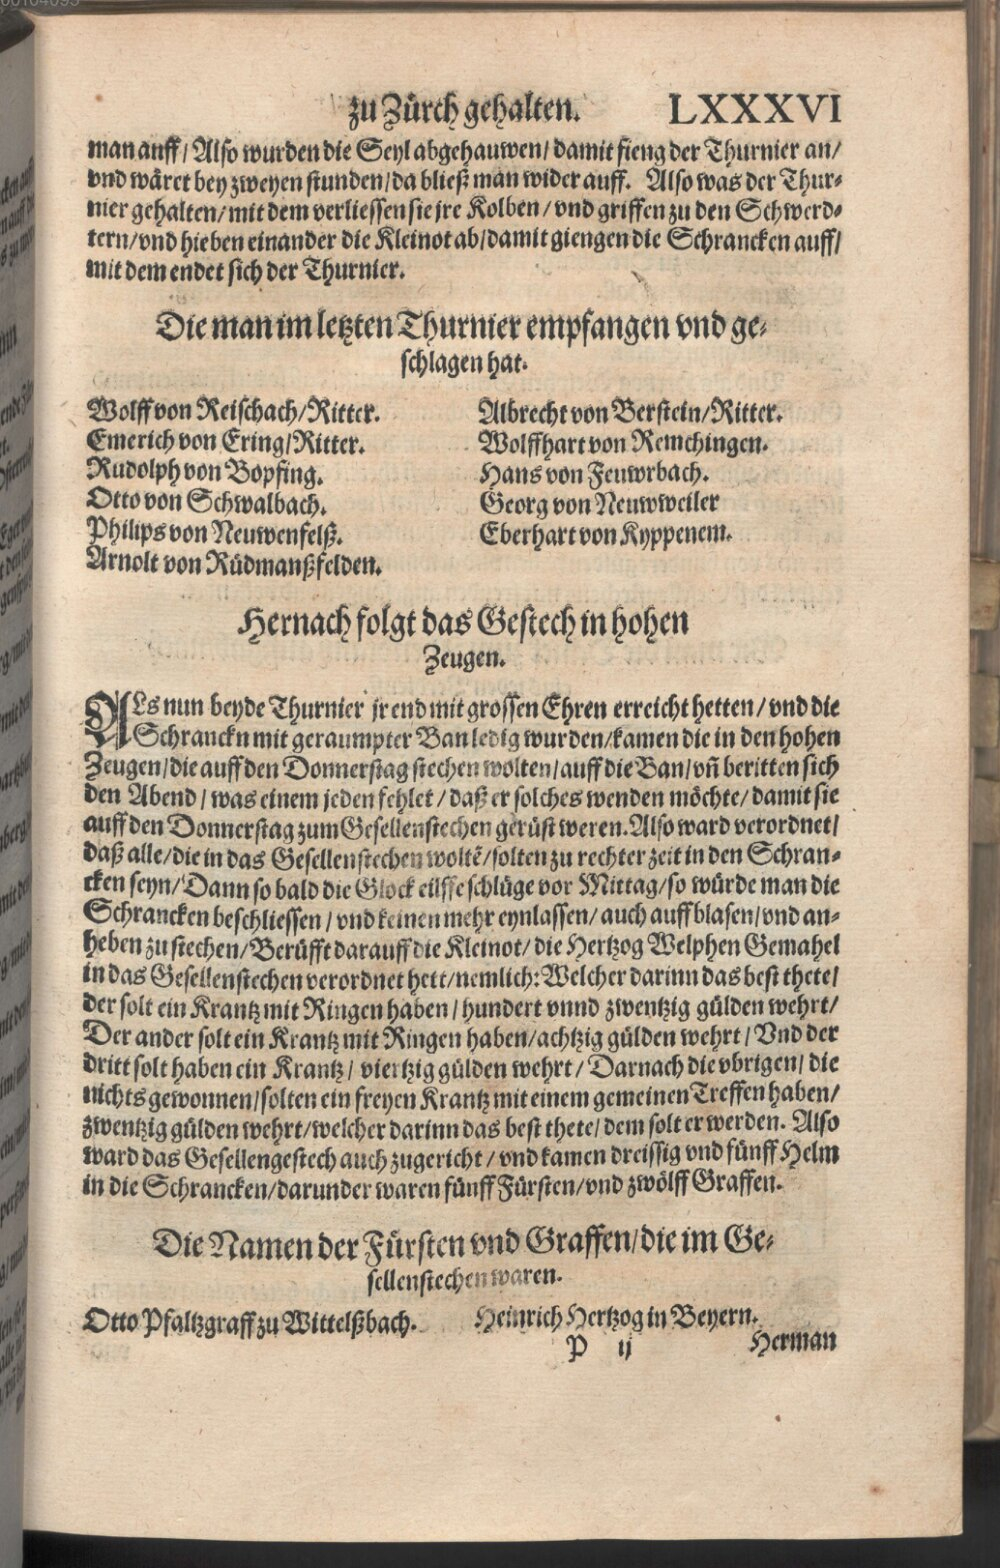 zu Zürch gehalten. LXXXVI
man auff/ Also wurden die Seyl abgehauwen/ damit fieng der Thurnier an/
vnd wäret bey zweyen stunden/ da bließ man wider auff. Also was der Thur-
nier gehalten/ mit dem verliessen sie jre Kolben/ vnd griffen zu den Schwerd-
tern/ vnd hieben einander die Kleinot ab/ damit giengen die Schrancken auff/
mit dem endet sich der Thurnier.
Die man im letzten Thurnier empfangen vnd ge-
schlagen hat.
Wolff von Reischach/ Ritter.
Emerich von Ering/ Ritter.
Rudolph von Bopfing.
Otto von Schwalbach.
Philips von Neuwenfelß.
Arnolt von Rüdmanßfelden.
Albrecht von Berstein/ Ritter.
Wolffhart von Remchingen.
Hans von Feuwrbach.
Georg von Neuwweiler
Eberhart von Kyppenem.
Hernach folgt das Gestech in hohen
Zeugen.
ALs nun beyde Thurnier jr end mit grossen Ehren erreicht hetten/ vnd die
Schranckn mit geraumpter Ban ledig wurden/ kamen die in den hohen
Zeugen/ die auff den Donnerstag stechen wolten/ auff die Ban/ vñ beritten sich
den Abend/ was einem jeden fehlet/ daß er solches wenden möchte/ damit sie
auff den Donnerstag zum Gesellenstechen gerüst weren. Also ward verordnet/
daß alle/ die in das Gesellenstechen woltẽ/ solten zu rechter zeit in den Schran-
cken seyn/ Dann so bald die Glock eilffe schlüge vor Mittag/ so würde man die
Schrancken beschliessen/ vnd keinen mehr eynlassen/ auch auffblasen/ vnd an-
heben zu stechen/ Berüfft darauff die Kleinot/ die Hertzog Welphen Gemahel
in das Gesellenstechen verordnet hett/ nemlich: Welcher darinn das best thete/
der solt ein Krantz mit Ringen haben/ hundert vnnd zwentzig gülden wehrt/
Der ander solt ein Krantz mit Ringen haben/ achtzig gülden wehrt/ Vnd der
dritt solt haben ein Krantz/ viertzig gülden wehrt/ Darnach die vbrigen/ die
nichts gewonnen/ solten ein freyen Krantz mit einem gemeinen Treffen haben/
zwentzig gülden wehrt/ welcher darinn das best thete/ dem solt er werden. Also
ward das Gesellengestech auch zugericht/ vnd kamen dreissig vnd fünff Helm
in die Schrancken/ darunder waren fünff Fürsten/ vnd zwölff Graffen.
Die Namen der Fürsten vnd Graffen/ die im Ge-
sellenstechen waren.
Otto Pfaltzgraff zu Wittelßbach.
Heinrich Hertzog in Beyern.
P ij Herman